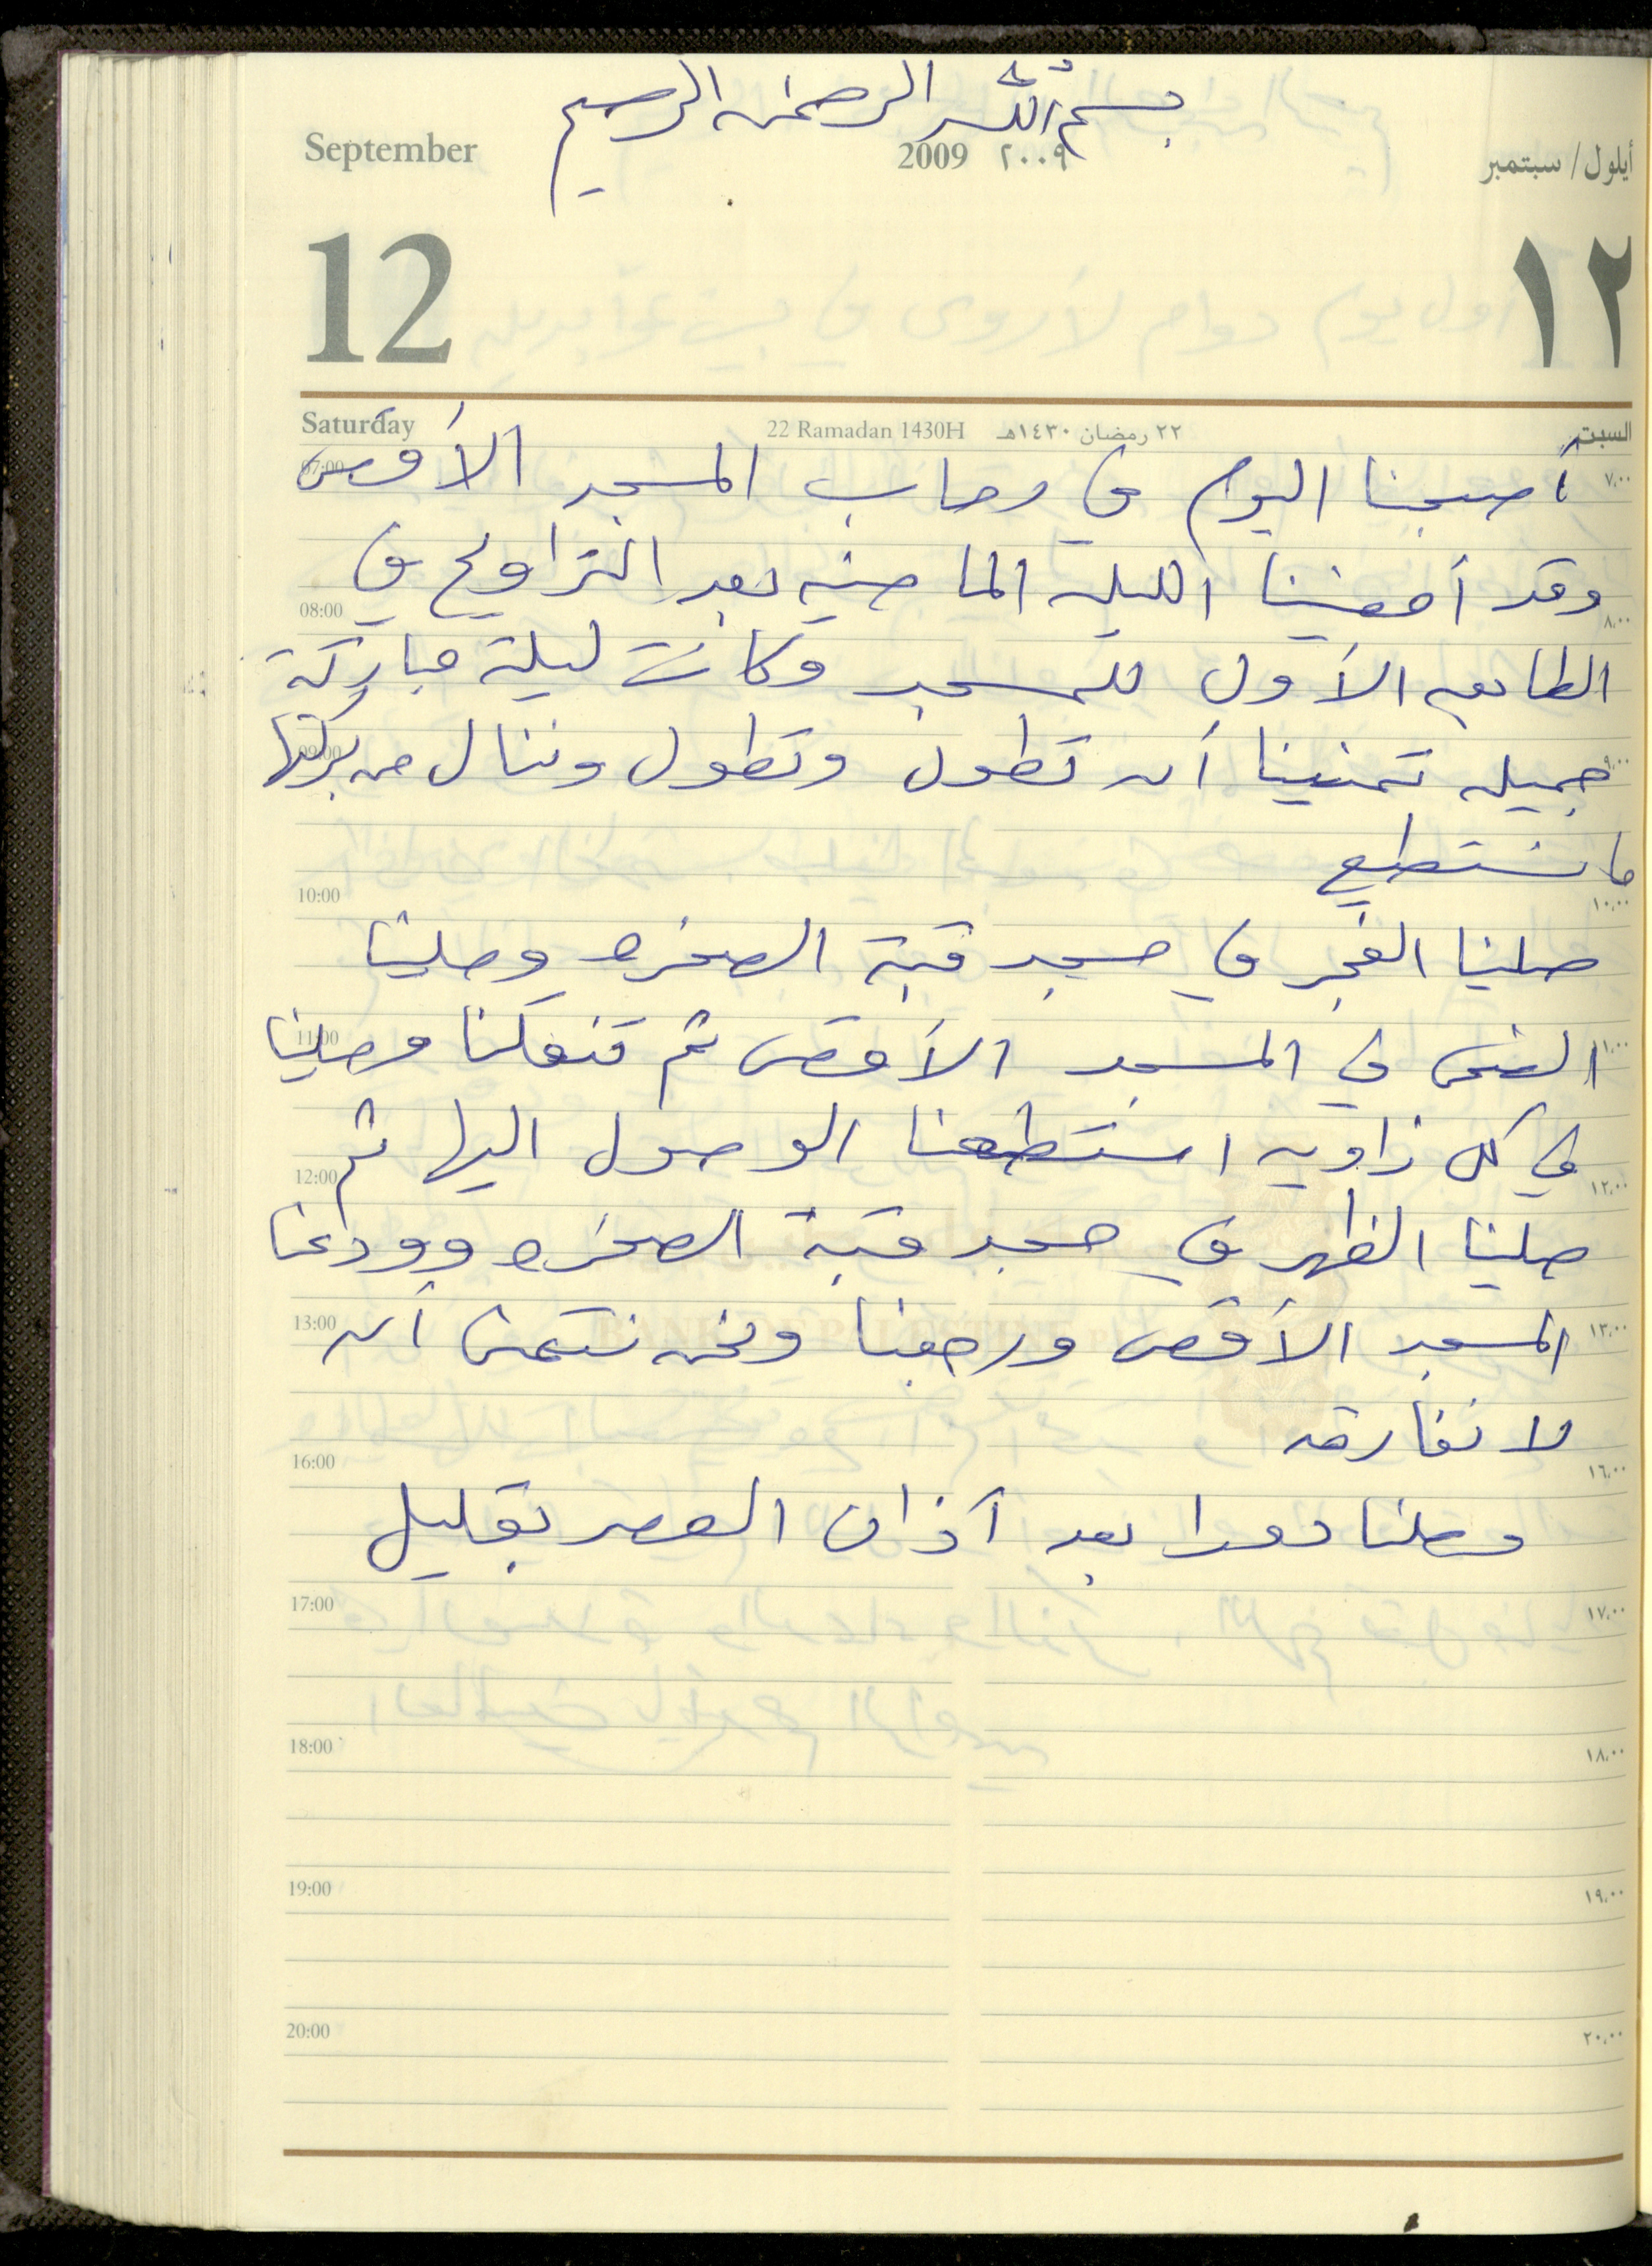 بسم الله الرحمن الرحيم
September 2009 ٢٠٠٩ أيلول/سبتمبر
12 ١٢
Saturday 22 Ramadan 1430H ٢٢ رمضان ١٤٣٠هـ السبت
07:00 أصبحنا اليوم في رحاب المسجد الأقصى ٧،٠٠
وقد أمضينا الليله الماضيه بعد التراويح في
08:00 ٨،٠٠
الطابق الأول للمسجد وكانت ليلة مباركة
09:00 جميله تمنينا أن تطول وتطول وننال من بركتها ٩،٠٠
ما نستطيع
10:00 ١٠،٠٠
صلينا الفجر في مسجد قبة الصخره وصلينا
11:00 الضحى في المسجد الأقصى ثم تنقلنا وصلينا ١١،٠٠
في كل زاويه استطعنا الوصول اليها ثم
12:00 ١٢،٠٠
صلينا الظهر في مسجد قبة الصخره وودعنا
BANK OF PALESTINE
13:00 المسجد الأقصى ورجعنا ونحن نتمنى أن ١٣،٠٠
لا نفارقه
16:00 ١٦،٠٠
وصلنا دورا بعد آذان العصر بقليل
17:00 ١٧،٠٠
18:00 ١٨،٠٠
19:00 ١٩،٠٠
20:00 ٢٠،٠٠